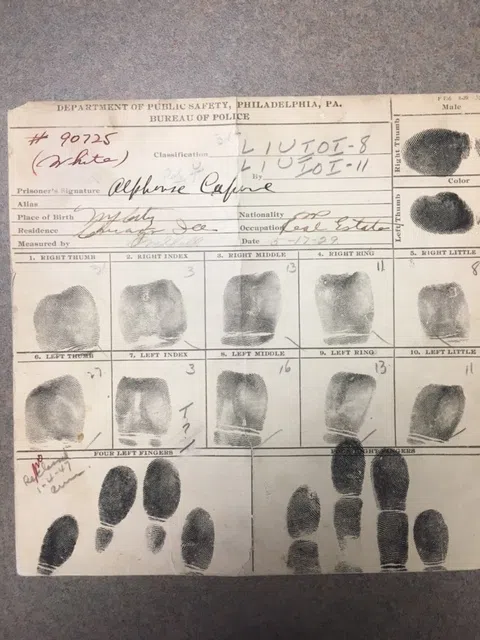 DEPARTMENT OF PUBLIC SAFETY, PHILADELPHIA, PA.
BUREAU OF POLICE
Male
# 90725
(White)
Classification L I U IOI-8
By L I U IOI-11
Right Thumb
Color
Prisoner's Signature Alphonse Capone
Alias
Left Thumb
Place of Birth N.Y. City Nationality
Residence Chicago Ill Occupation Real Estate
Measured by Date 5-17-29
1. RIGHT THUMB 2. RIGHT INDEX 3. RIGHT MIDDLE 4. RIGHT RING 5. RIGHT LITTLE
3 13 11 8
6. LEFT THUMB 7. LEFT INDEX 8. LEFT MIDDLE 9. LEFT RING 10. LEFT LITTLE
3 16 13 11
T
?
FOUR LEFT FINGERS FOUR RIGHT FINGERS
1-4-47